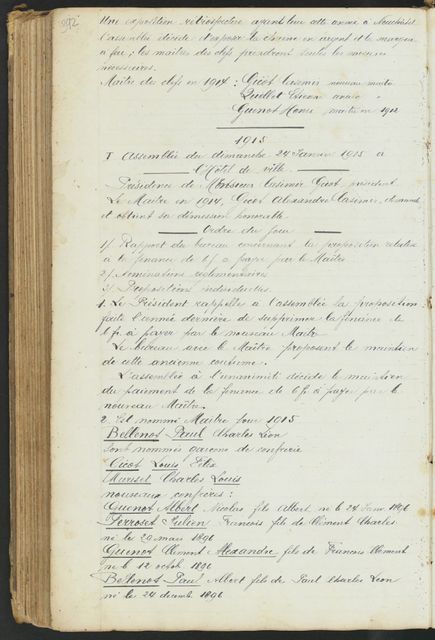 292
Une exposition rétrospective ayant lieu cette année à Neuchâtel
l'assemblée décide d'exposer la chaîne en argent et le
à feu ; les maîtres des clefs prendront toutes les mesures
nécessaires.
Maître des clefs en 1914 : Gicot Casimir nouveau maître
Quellet
Guenot Henri maître en 1912
1915
I Assemblée du dimanche 24 Janvier 1915 à
l'Hôtel de ville.
Présidence de Monsieur Casimir Gicot président
Le Maître en 1914, Gicot Alexandre Casimir, demande
et obtient sa démission honorable.
Ordre du jour
1/ Rapport du bureau concernant la proposition relative
à la finance de 6 f à payer par le Maître
2/ Nominations réglementaires
3/ Propositions individuelles.
1. Le Président rappelle à l'assemblée la proposition
faite l'année dernière de supprimer la finance de
6 fr à payer par le nouveau Maître
Le bureau avec le Maître proposent le maintien
de cette ancienne coutume.
L'assemblée à l'unanimité décide le maintien
du paiement de la finance de 6 f à payer par le
nouveau Maître.
2. Est nommé Maître pour 1915
Bellenot Paul Charles Léon
sont nommés garçons de confrérie
Gicot Louis Félix
Muriset Charles Louis
nouveaux confrères :
Guenot Albert Nicolas fils Albert, né le 24 Janv 1896
Perroset Julien François fils de Clément Charles
né le 20 mars 1896
Guenot Clément Alexandre fils de François Clément
né le 12 octob 1896
Bellenot Paul Albert fils de Paul Charles Léon
né le 24 décemb 1896